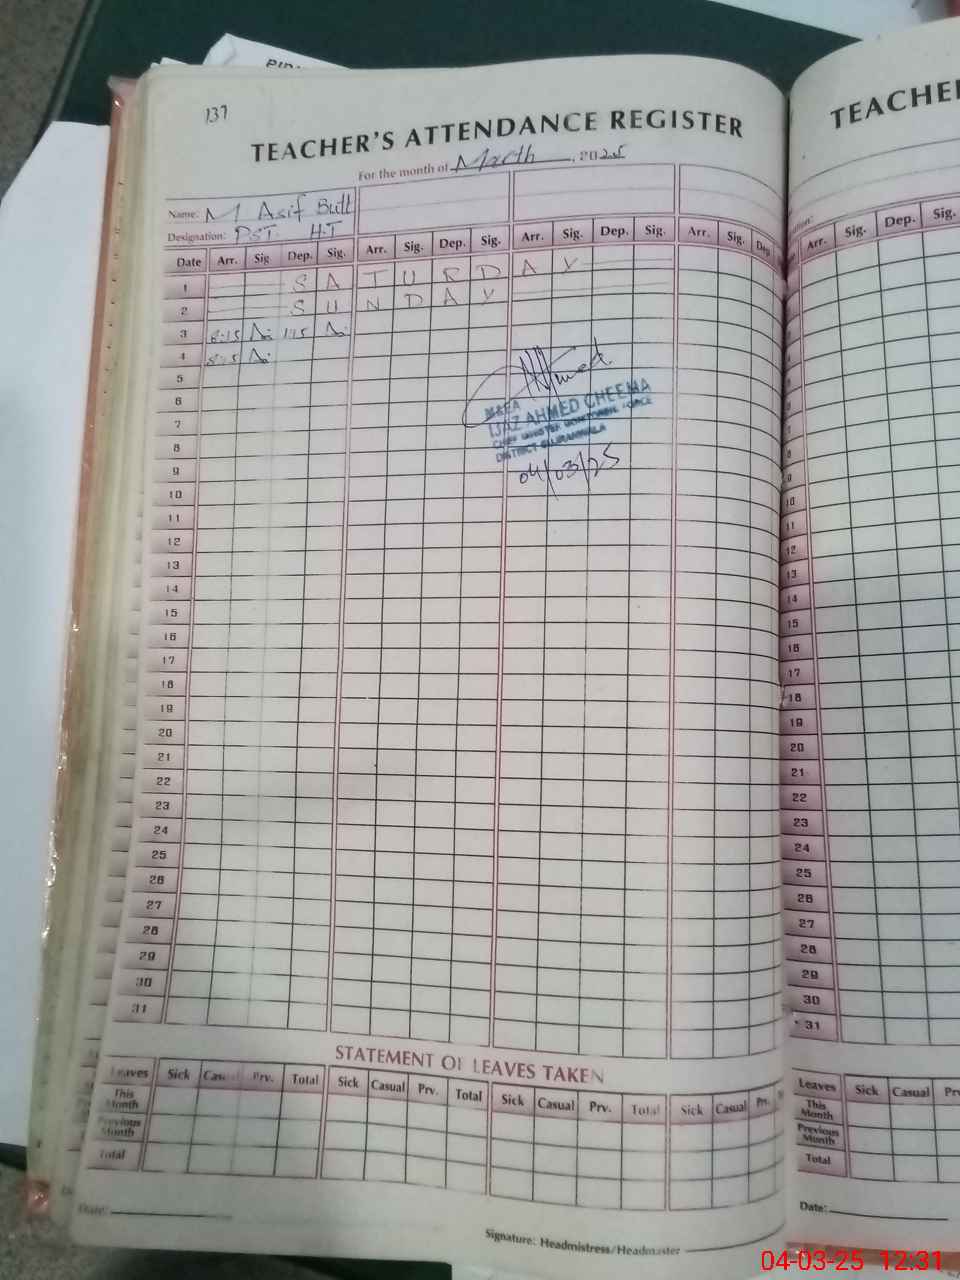 137
TEACHER'S ATTENDANCE REGISTER
For the month of March, 2025
Name: M Asif Butt
Designation: PST. H.T
Date Arr. Sig Dep. Sig. Arr. Sig. Dep. Sig. Arr. Sig. Dep. Sig. Arr. Sig. Dep.
1 S A T U R D A Y
2 S U N D A Y
3 8:15 1:15
4 8:15
5
6
7
8
9
10
11
12
13
14
15
16
17
18
19
20
21
22
23
24
25
26
27
28
29
30
31
M&EA
IJAZ AHMED CHEEMA
CHIEF MINISTER MONITORING FORCE
DISTRICT GUJRANWALA
04/03/25
STATEMENT OF LEAVES TAKEN
Leaves Sick Casual Prv. Total Sick Casual Prv. Total Sick Casual Prv. Total Sick Casual Prv.
This Month
Previous Month
Total
Date:
Signature: Headmistress/Headmaster
TEACHE
Arr. Sig. Dep. Sig.
9
10
11
12
13
14
15
16
17
18
19
20
21
22
23
24
25
26
27
28
29
30
31
Leaves Sick Casual
This Month
Previous Month
Total
Date:
04-03-25 12:31